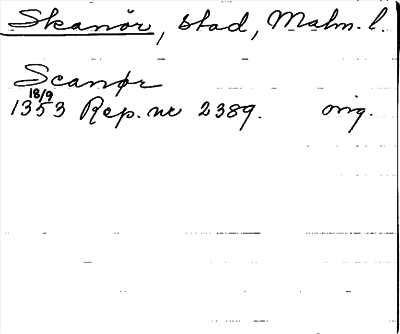 Skanör, stad, Malm. l.
Scanør
18/9
1353 Rep. nr 2389. orig.